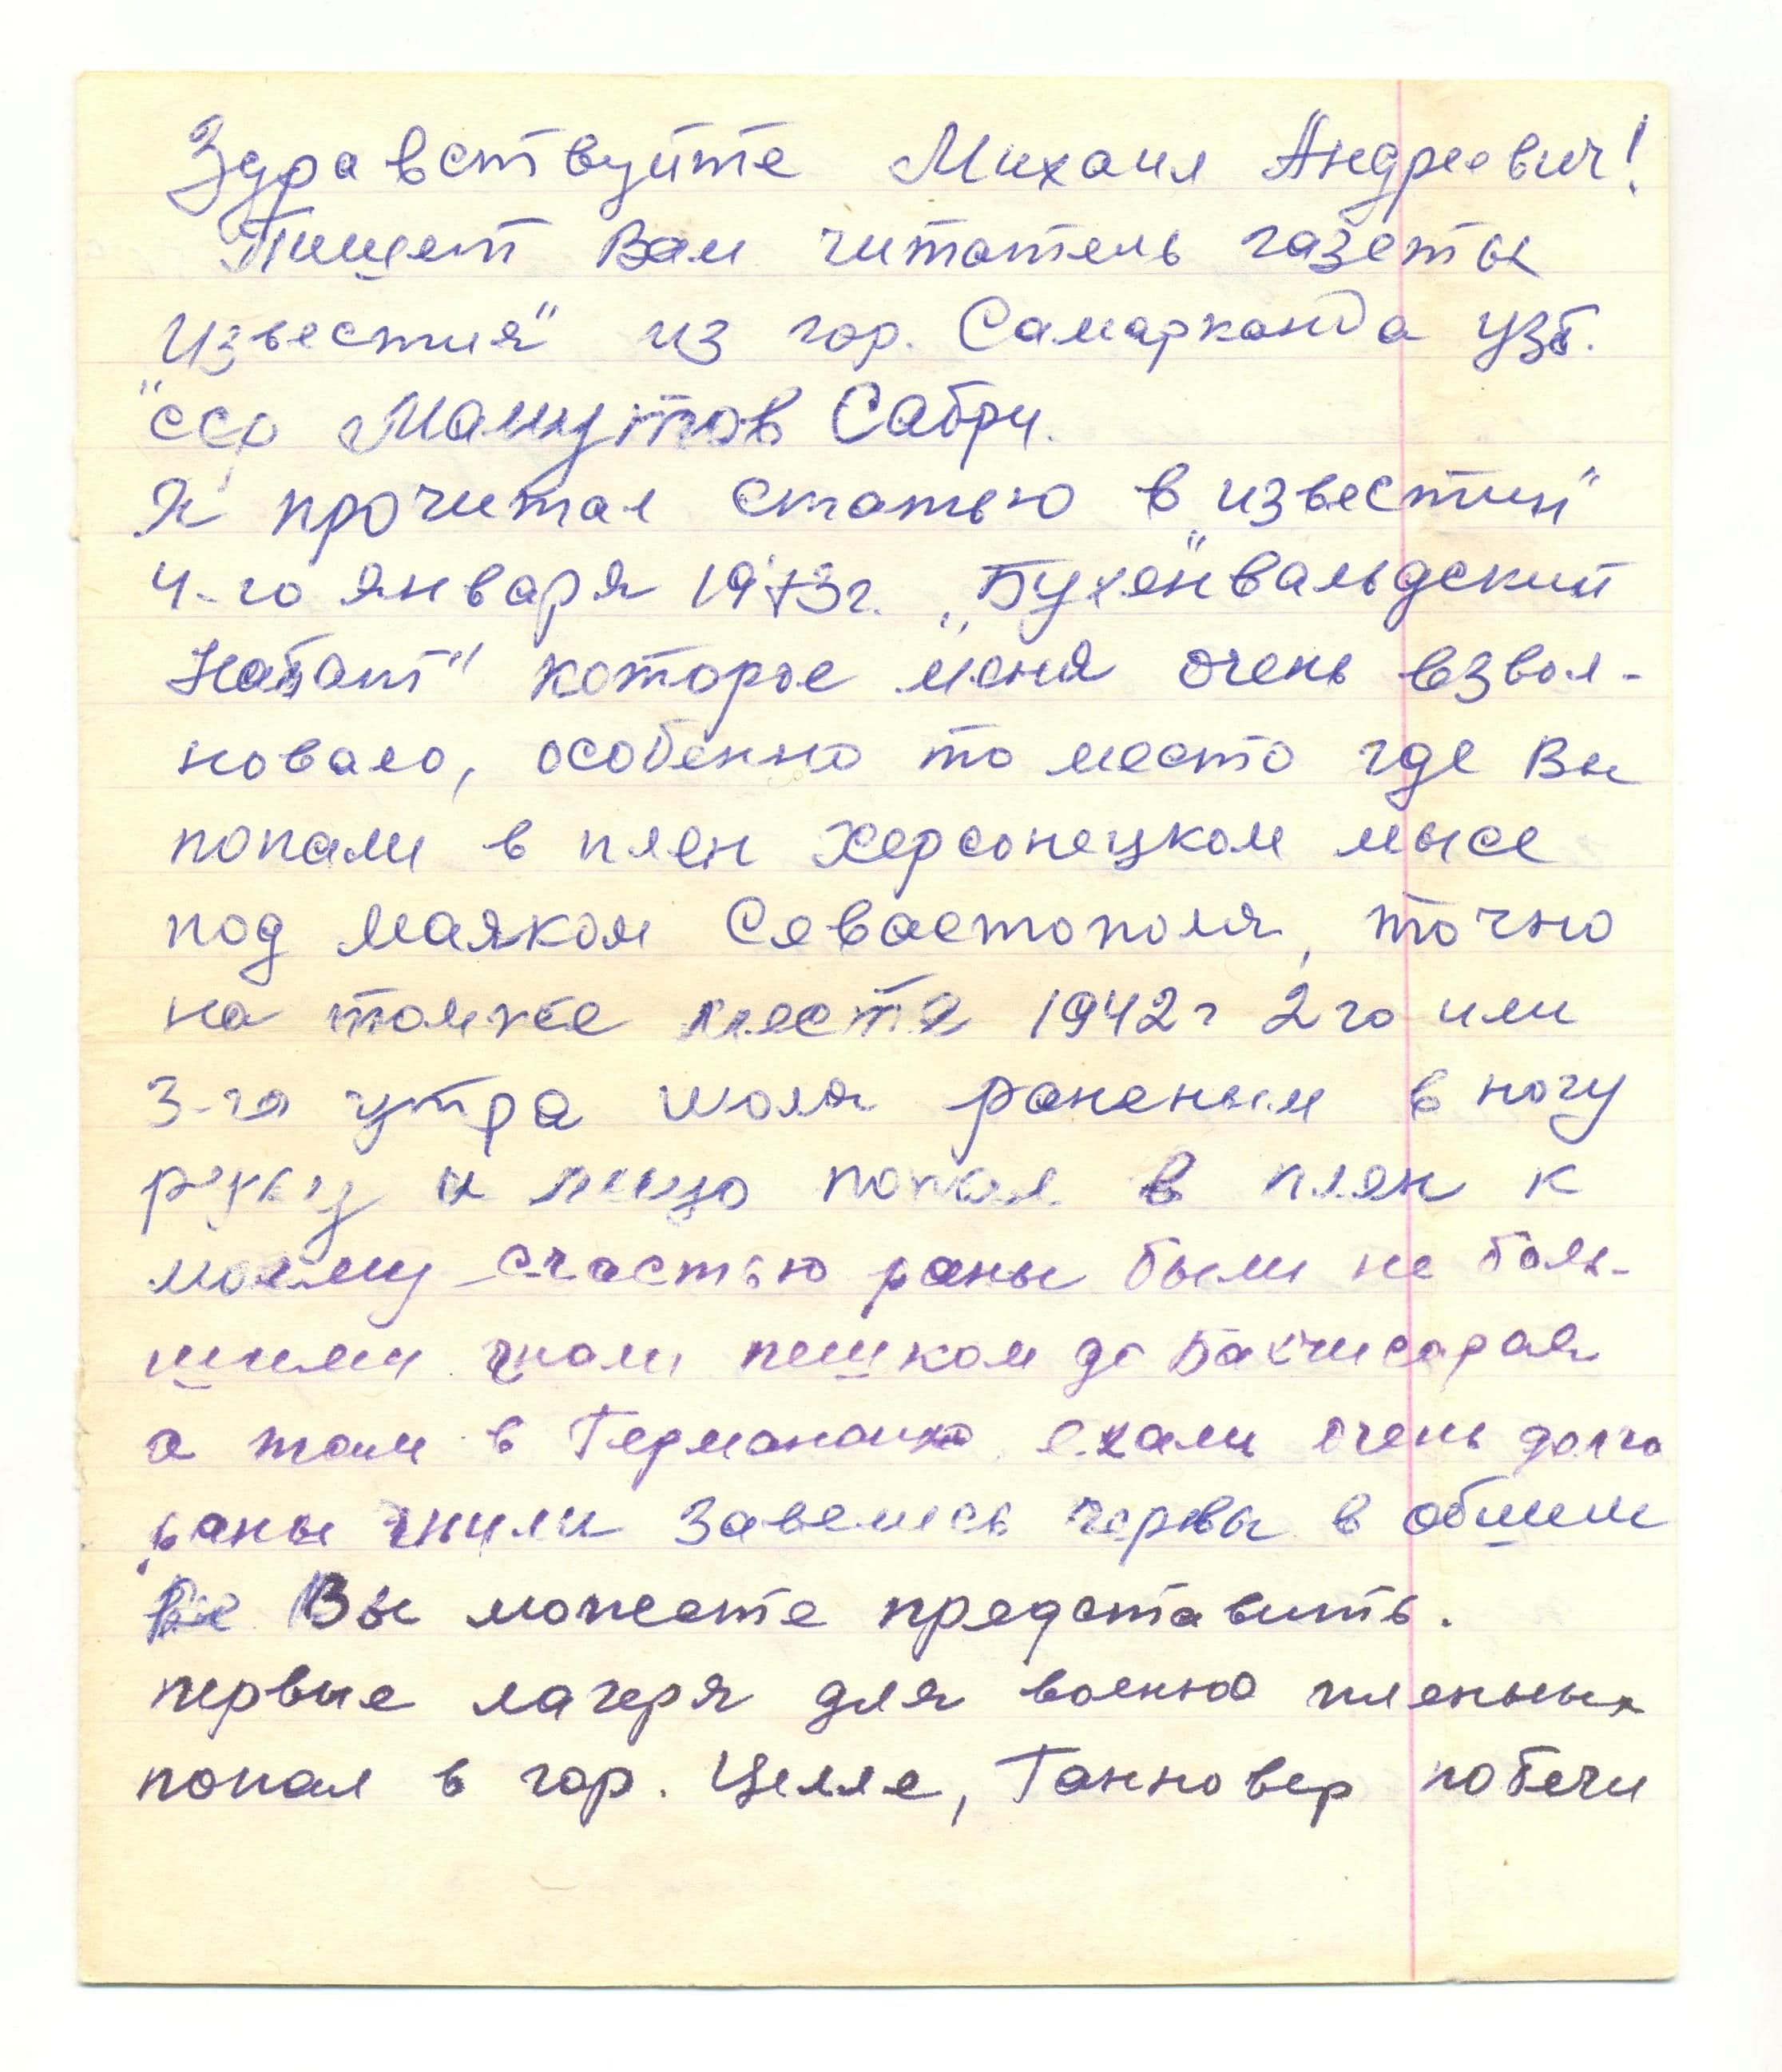 Здравствуйте Михаил Андреевич!
Пишет Вам читатель газеты
"Известия" из гор. Самарканда Узб.
ССР Мамутов Сабри.
Я прочитал статью в "известии"
4-го января 1973г. "Бухенвальдский
Набат" которое меня очень взвол-
новало, особенно то место где Вы
попали в плен Херсонецком мысе
под маяком Севастополя, точно
на томже месте 1942г 2го или
3-го утра июля раненым в ногу
руку и лицо попал в плен к
моему счастью раны были не боль-
шими гнали пешком до Бахчисарая
а там в Германию ехали очень долго
раны гнили завелись червы в общем
Вы можете представить.
первые лагеря для военно пленных
попал в гор. Целле, Ганновер побеги